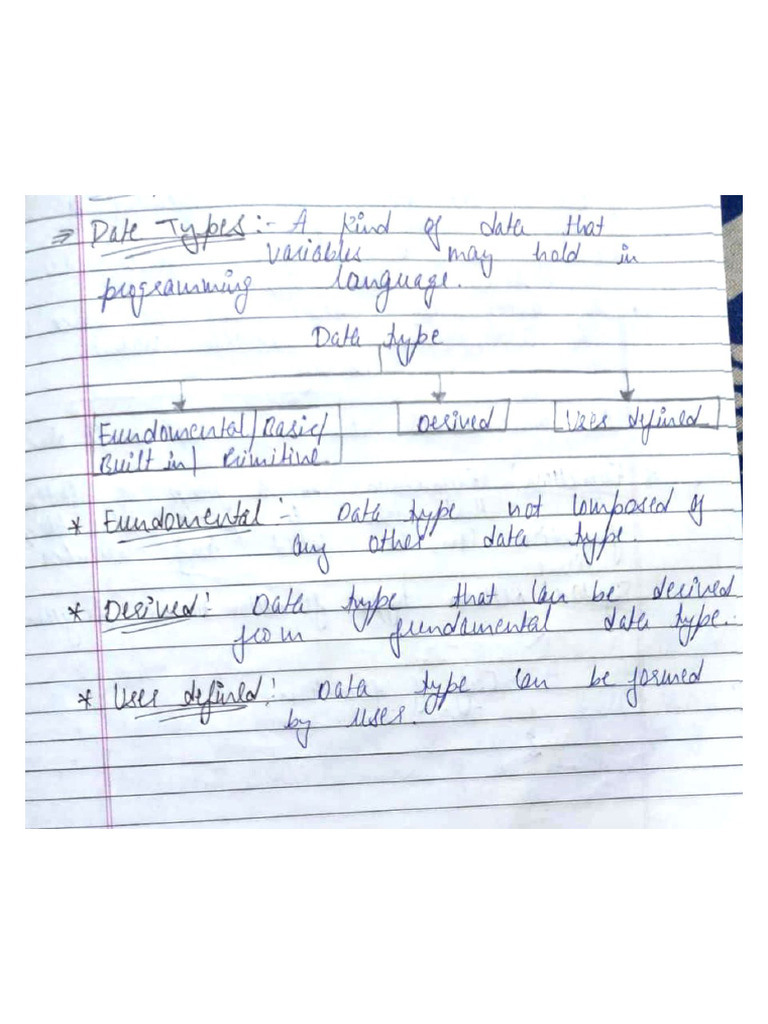 ⇒ Data Types:- A kind of data that
variables may hold in
programming language.
Data type
Fundomental/Basic/
Built in/ Primitive
Derived
User defined
* Fundomental :- Data type not composed of
any other data type.
* Derived: Data type that can be derived
from fundamental data type.
* User defined: Data type can be formed
by user.